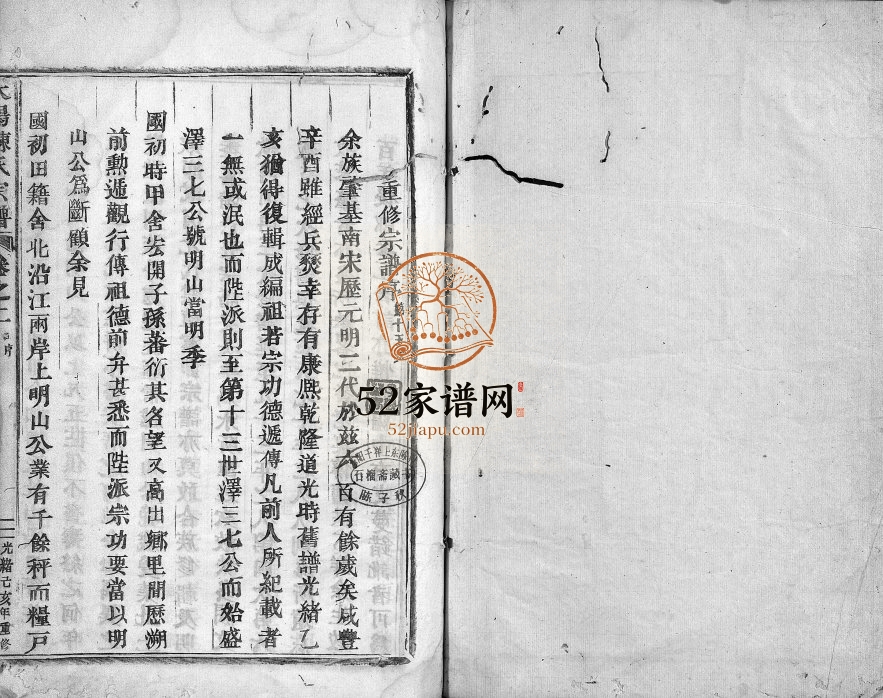 重修宗譜序
余族肇基南宋歷元明三代於茲六百有餘歲矣咸豐
辛酉雖經兵燹幸存有康熙乾隆道光時舊譜光緒乙
亥猶得復輯成編祖若宗功德遞傳凡前人所紀載者
一無或泯也而陞派則至第十三世澤三七公而始盛
澤三七公號明山當明季
國初時甲舍宏開子孫蕃衍其名望又高出鄉里間歷溯
前勳遞觀行傳祖德前弁甚悉而陞派宗功要當以明
山公為斷顧余見
國初田籍舍北沿江兩岸上明山公業有千餘秤而糧戶
陳氏宗譜
卷之二
光緒己亥年重修
52家谱网
52jiapu.com